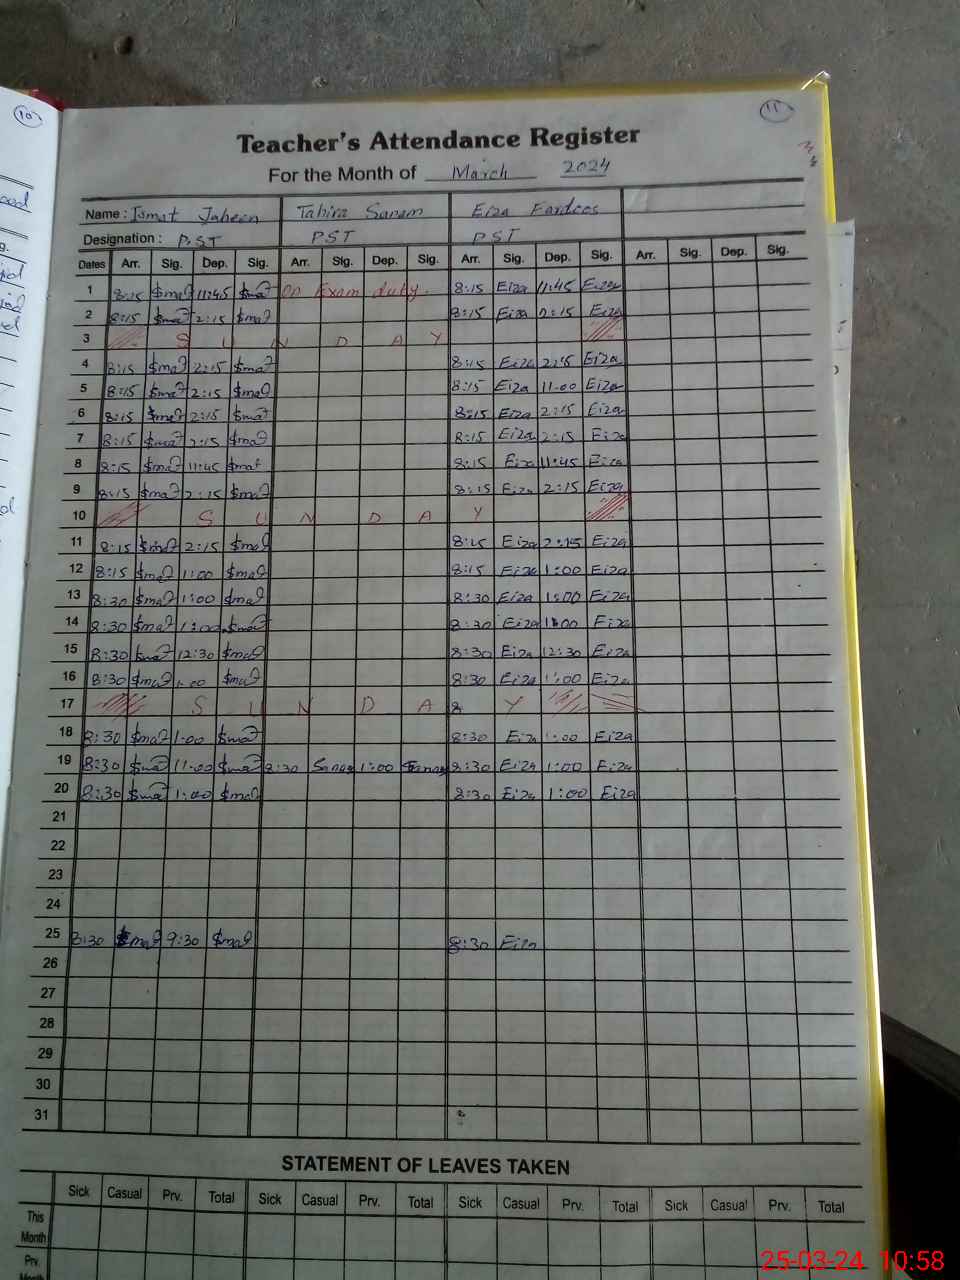 10
11
Teacher's Attendance Register
For the Month of March 2024
Name : Ismat Jabeen Tahira Sanam Eiza Fardoos
Designation : P.ST PST PST
Dates Arr. Sig. Dep. Sig. Arr. Sig. Dep. Sig. Arr. Sig. Dep. Sig. Arr. Sig. Dep. Sig.
1 8:15 11:45 On Exam duty. 8:15 Eiza 11:45 Eiza
2 8:15 2:15 8:15 Eiza 2:15 Eiza
3 S U N D A Y
4 8:15 2:15 8:15 Eiza 2:15 Eiza
5 8:15 2:15 8:15 Eiza 11:00 Eiza
6 8:15 2:15 8:15 Eiza 2:15 Eiza
7 8:15 2:15 8:15 Eiza 2:15 Eiza
8 8:15 11:45 8:15 Eiza 11:45 Eiza
9 8:15 2:15 8:15 Eiza 2:15 Eiza
10 S U N D A Y
11 8:15 2:15 8:15 Eiza 2:15 Eiza
12 8:15 1:00 8:15 Eiza 1:00 Eiza
13 8:30 1:00 8:30 Eiza 1:00 Eiza
14 8:30 1:00 8:30 Eiza 1:00 Eiza
15 8:30 12:30 8:30 Eiza 12:30 Eiza
16 8:30 1:00 8:30 Eiza 1:00 Eiza
17 S U N D A 8 Y
18 8:30 1:00 8:30 Eiza 1:00 Eiza
19 8:30 11:00 8:30 Sanam 1:00 Sanam 8:30 Eiza 1:00 Eiza
20 8:30 1:00 8:30 Eiza 1:00 Eiza
21
22
23
24
25 8:30 9:30 8:30 Eiza
26
27
28
29
30
31
STATEMENT OF LEAVES TAKEN
Sick Casual Prv. Total Sick Casual Prv. Total Sick Casual Prv. Total Sick Casual Prv. Total
This
Month
Prv.
Month
25-03-24 10:58